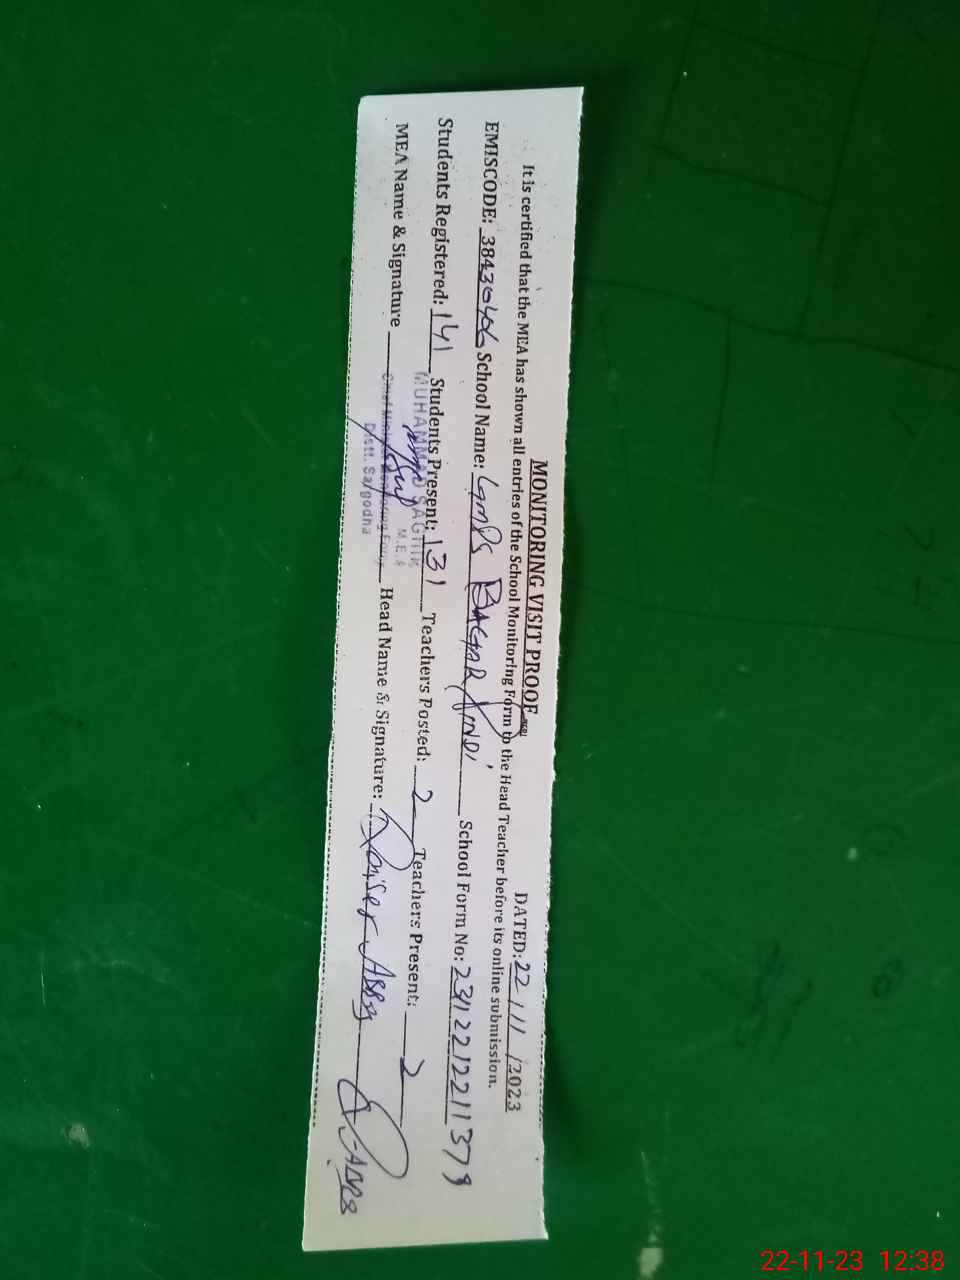 MONITORING VISIT PROOF DATED: 22/11/2023
It is certified that the MEA has shown all entries of the School Monitoring Form to the Head Teacher before its online submission.
EMISCODE: 38430406 School Name: GMPS School Form No: 2312212211379
Students Registered: 141 Students Present: 131 Teachers Posted: 2 Teachers Present: 2
MEA Name & Signature Head Name & Signature: Qaiser Abbas
MUHAMMAD SAGHIR
M.E.A
Chief Minister Monitoring Force
Distt. Sargodha
22-11-23 12:38